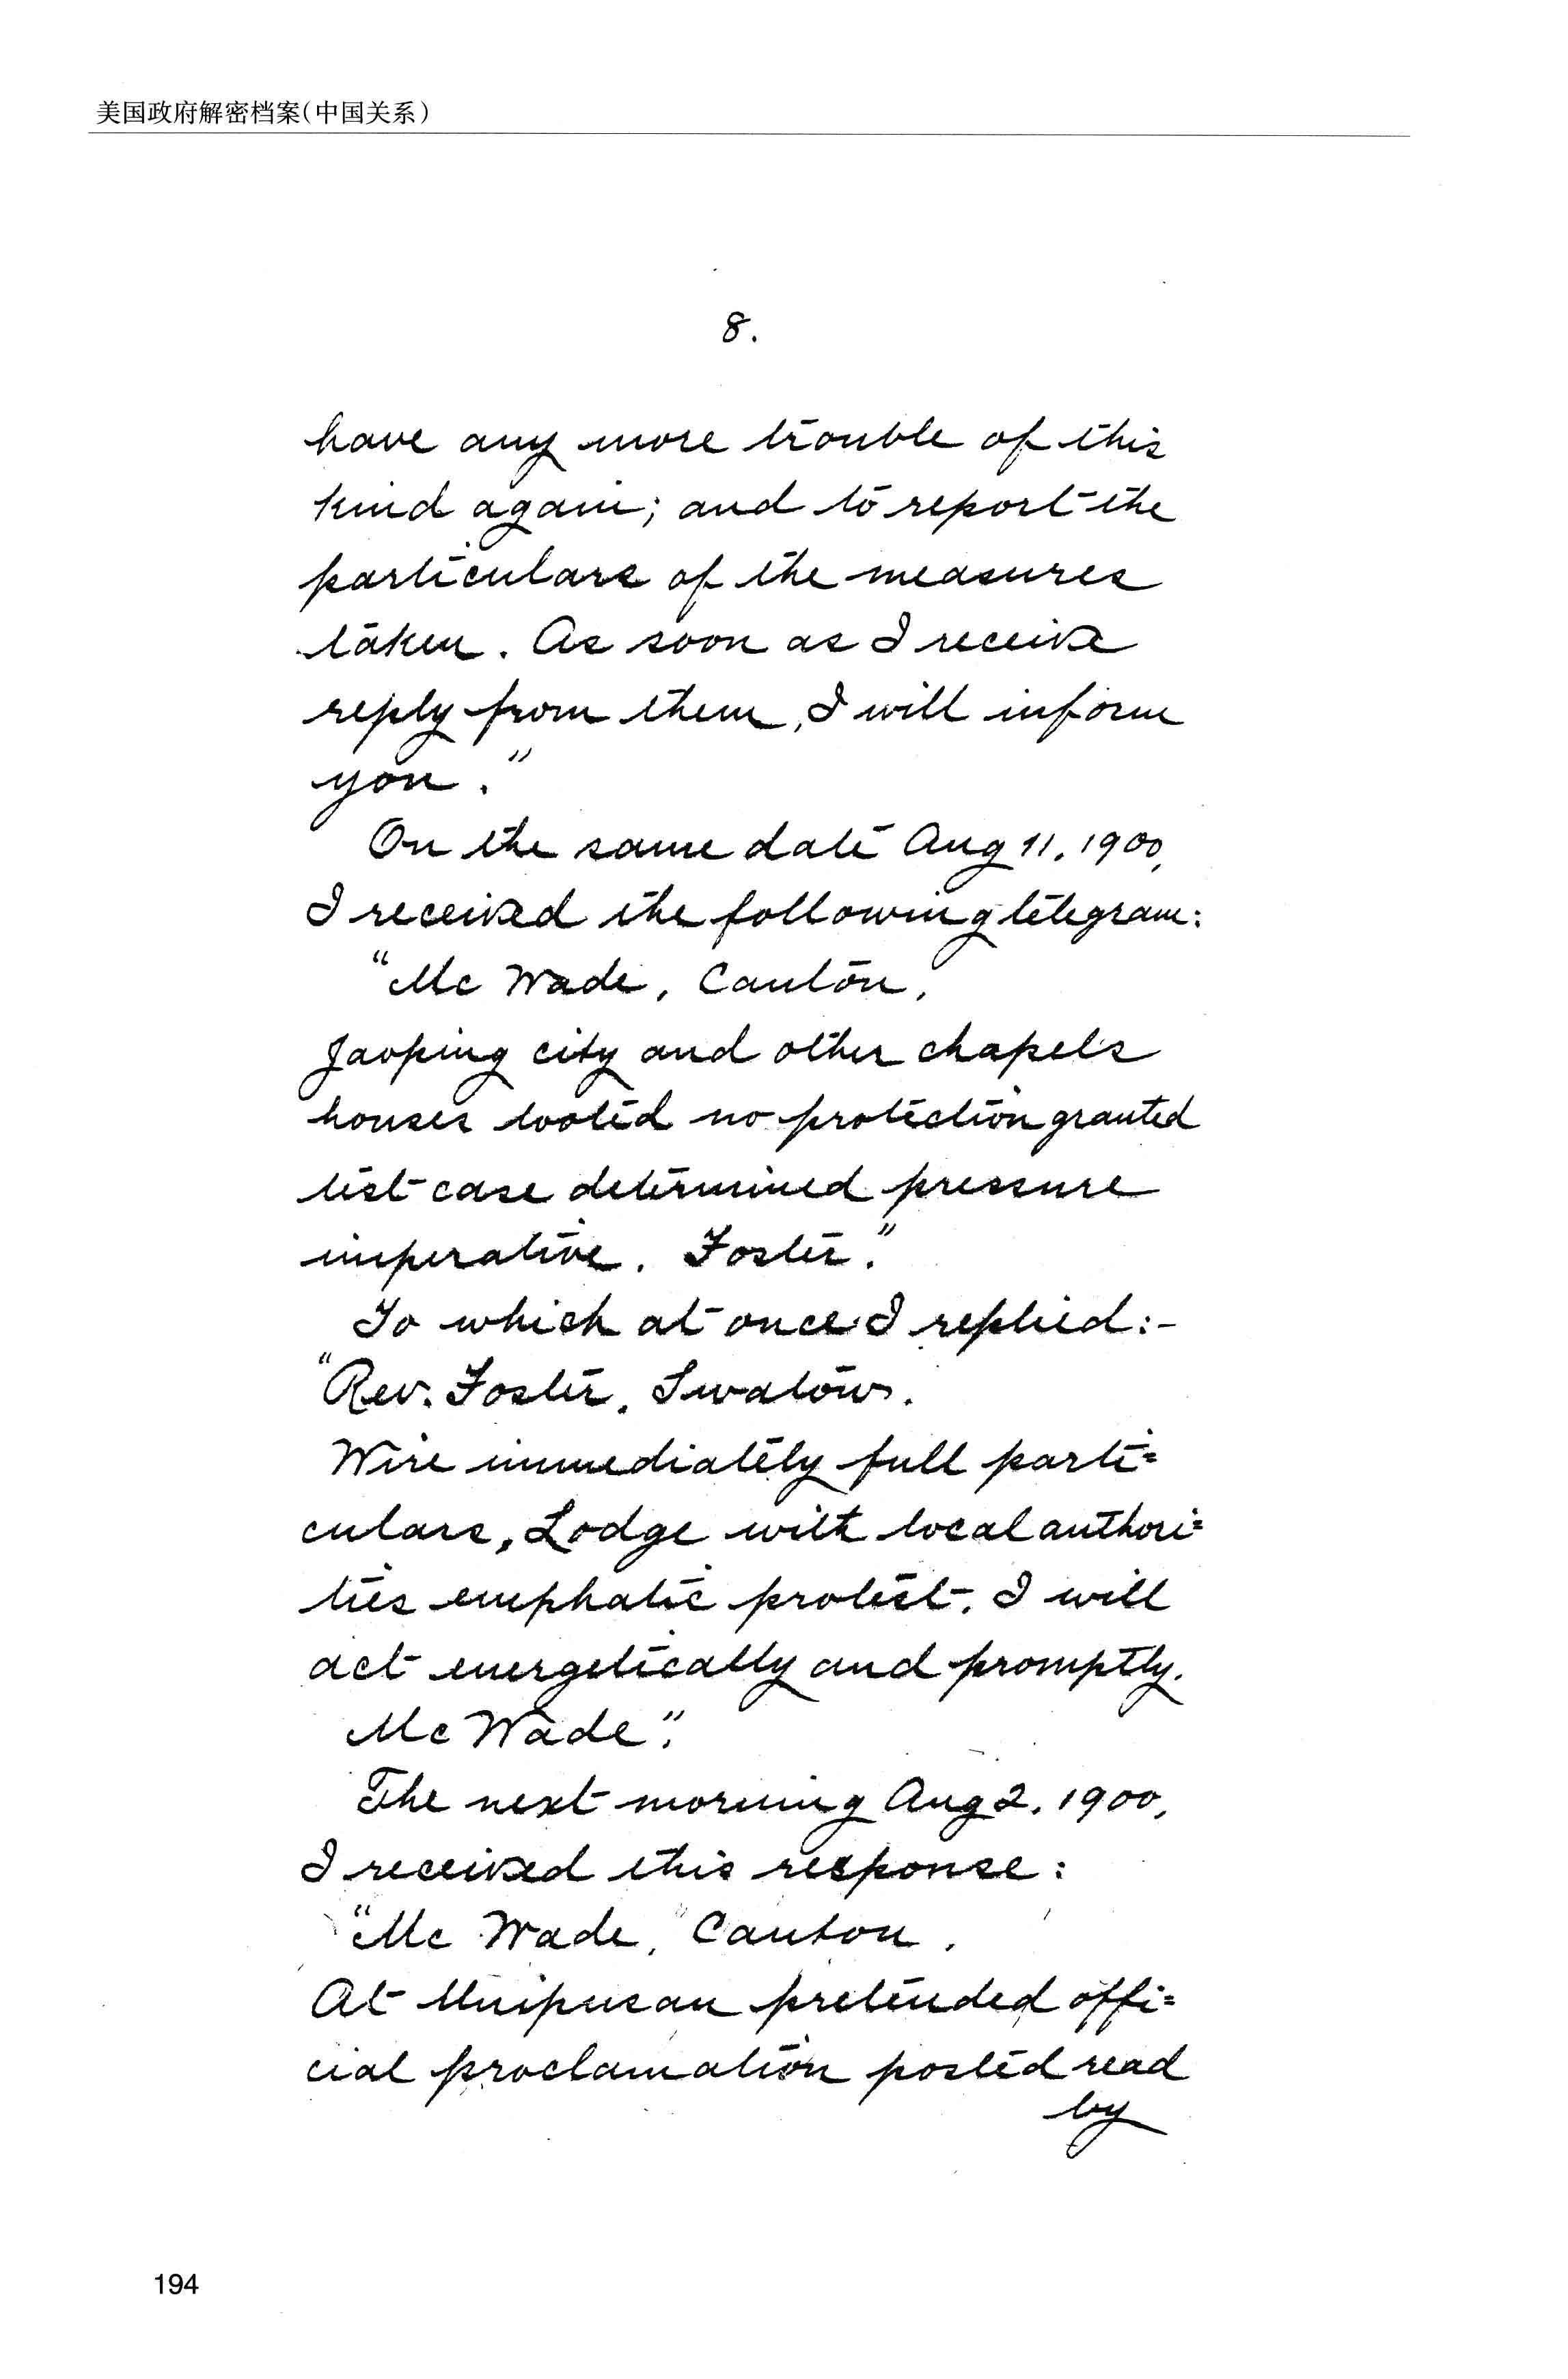 美国政府解密档案(中国关系)
8.
have any more trouble of this
kind again; and to report the
particulars of the measures
taken. As soon as I receive
reply from them, I will inform
you."
On the same date Aug 11, 1900,
I received the following telegram:
"Mc Wade, Canton,
Jaoping city and other chapels
houses looted no protection granted
test case determined pressure
imperative. Foster."
To which at once I replied:-
"Rev. Foster, Swatow.
Wire immediately full parti=
culars, Lodge with local authori=
ties emphatic protest. I will
act energetically and promptly.
Mc Wade".
The next morning Aug 2, 1900,
I received this response:
"Mc Wade, Canton.
At pretended offi=
cial proclamation posted read
by
194